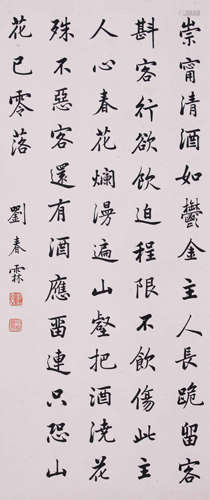 崇甯清酒如鬱金主人長跪留客
斟客行欲飲迫程限不飲傷此主
人心春花爛漫遍山壑把酒澆花
殊不惡客還有酒應畱連只恐山
花已零落
劉春霖